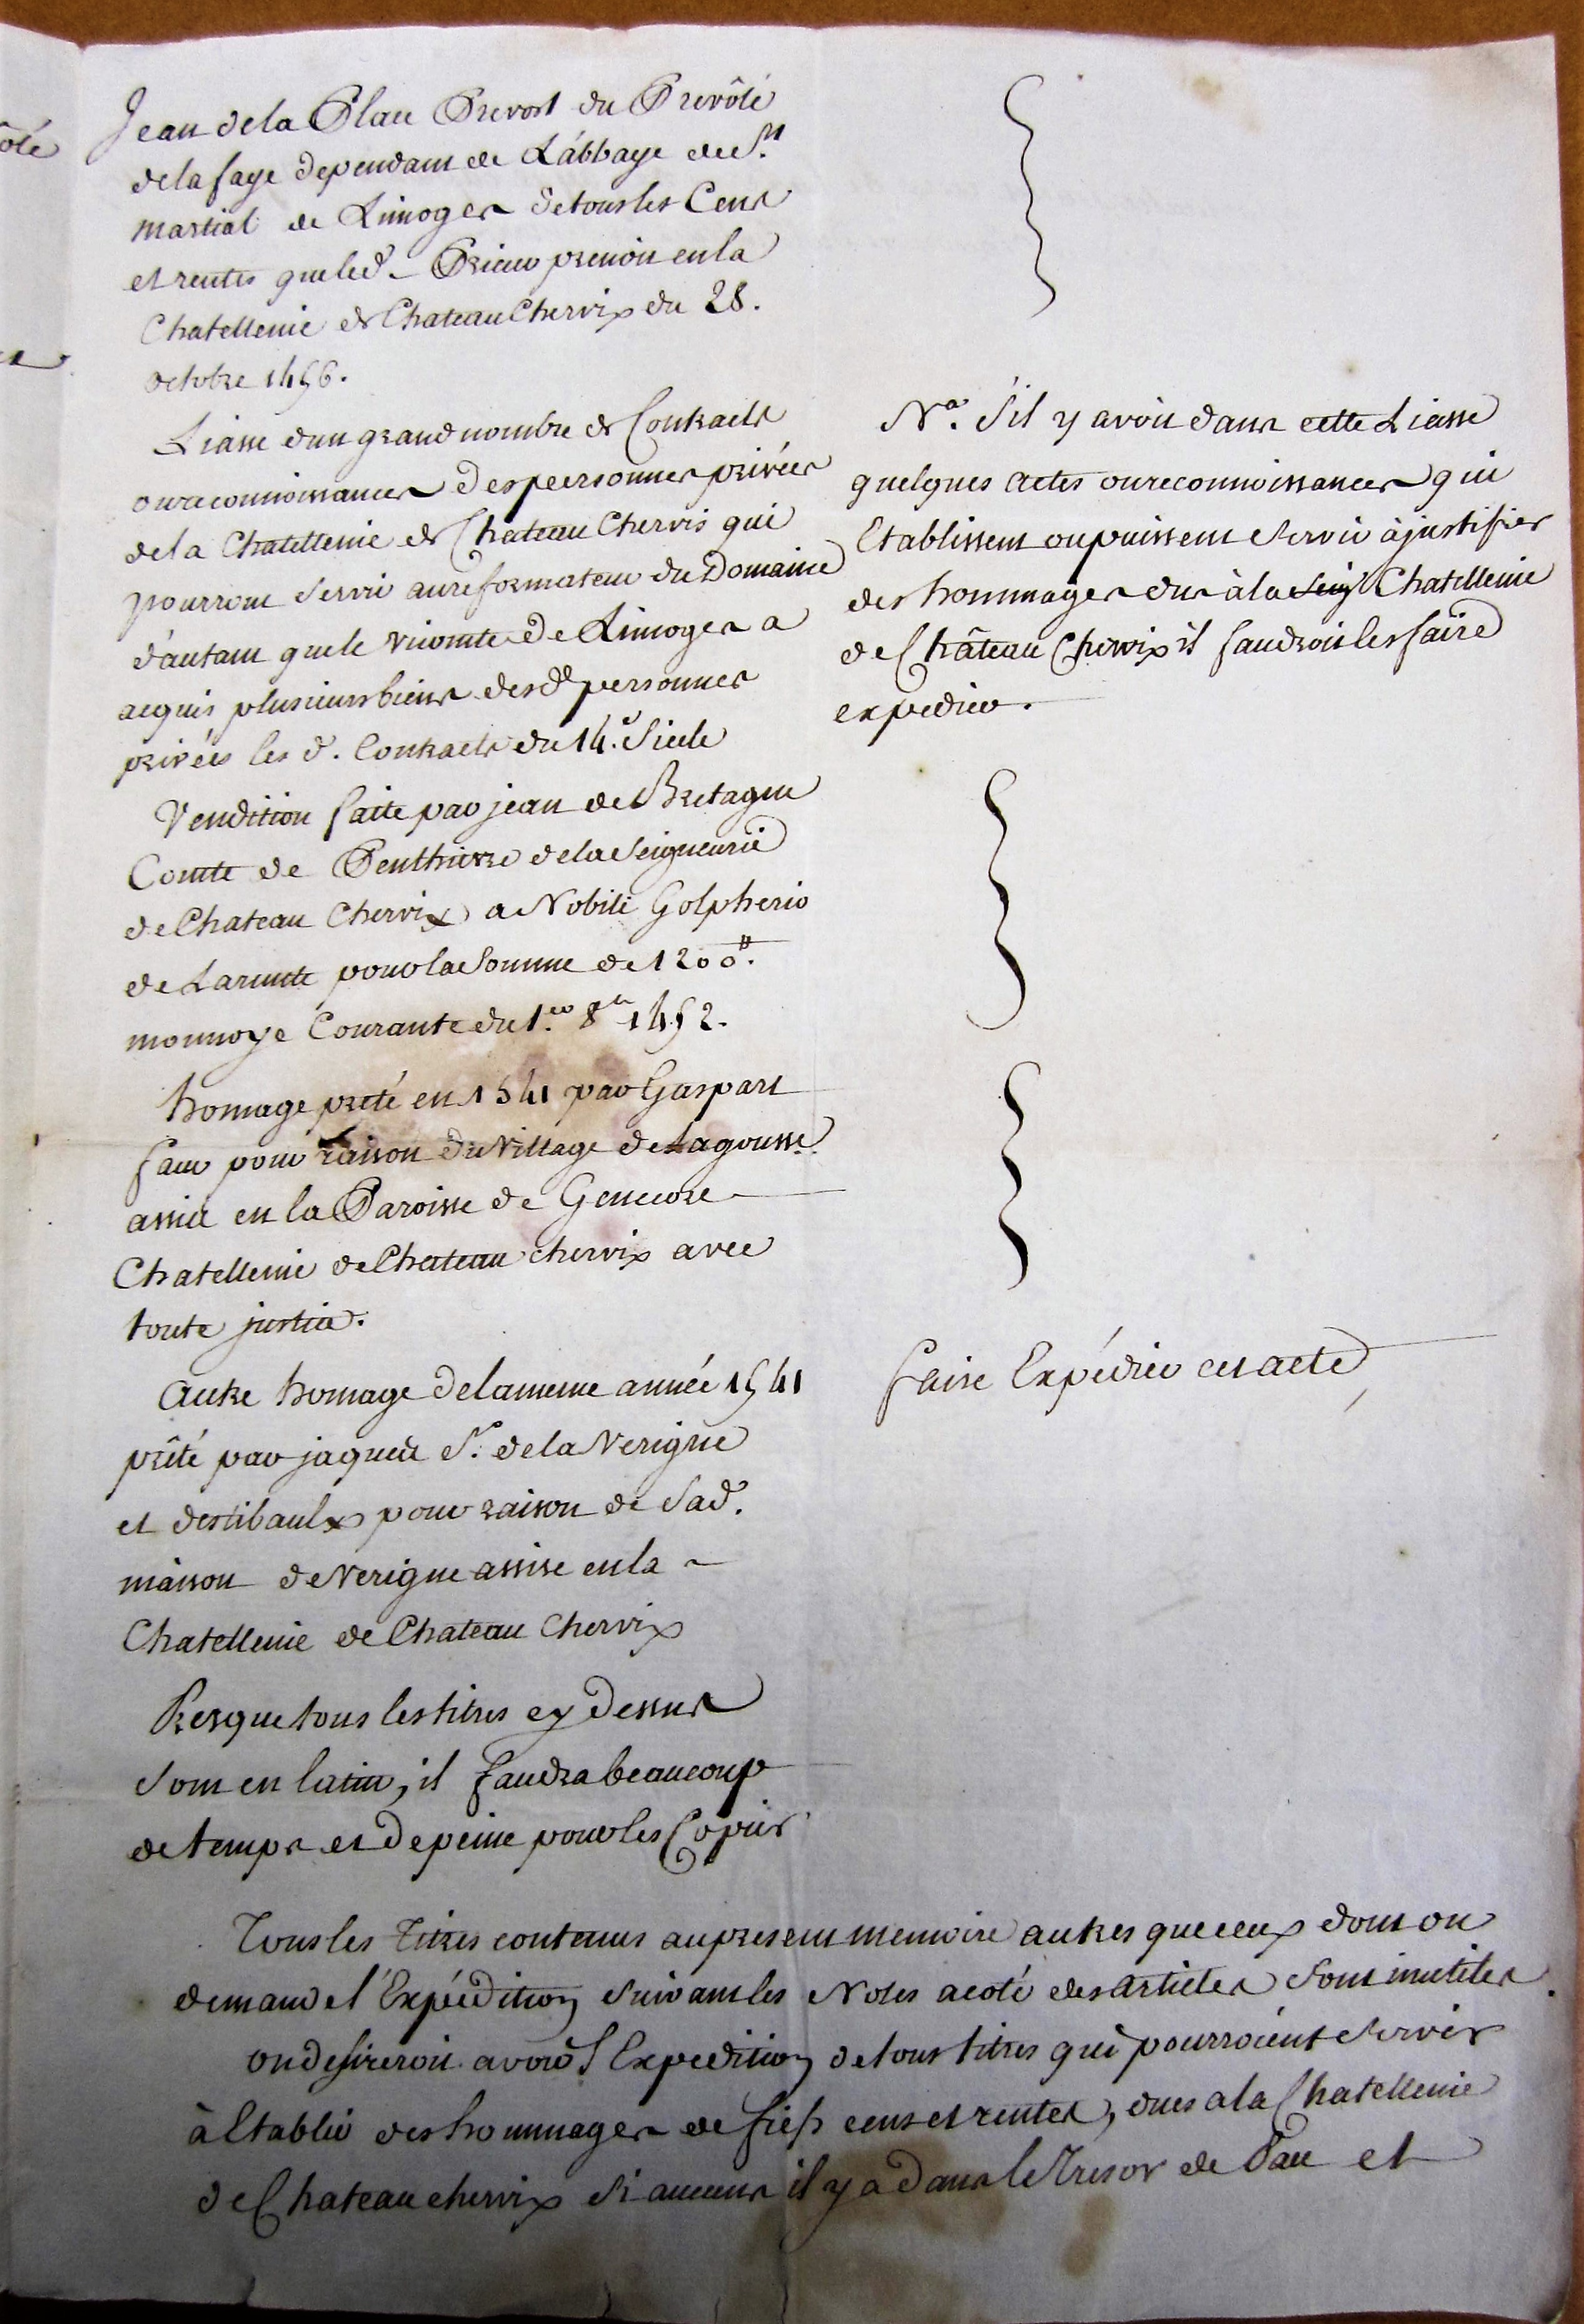 Jean de la Place Prevost du Prevôté
de la faye dependant de L'abbaye de St.
martial de Limoges de tous les Cens
et rentes que led. Prieur prenoit en la
Chatellenie de Chateau Chervix du 28.
octobre 1456.
Liasse d'un grand nombre de Contracts
ou reconnoissances des personnes privées
de la Chatellenie de Chateau Chervis qui
pourront servir au reformateur du Domaine
d'autant que le vicomte de Limoges a
acquis plusieurs biens desd. personnes
privées les d. Contracts du 14.e Siecle
Vendition faite par jean de Bretagne
Comte de Penthievre de la Seigneurie
de Chateau Chervix a Nobili Golpherio
de Larmite pour la Somme de 1200.#
monnoye Courante du 1.er 8.re 1452.
homage preté en 1541 par Gaspart
faur pour raison du Village de Lagousse
assis en la Paroisse de
Chatellenie de Chateau chervix avec
toute justice.
Autre homage de la meme année 1541
prêté par jaques Sr. de la Verigne
et destibaulx pour raison de Sad.
maison de Verigne assise en la
Chatellenie de Chateau Chervix
Presque tous les titres cy dessus
sont en latin, il faudra beaucoup
de temps et de peine pour les Copier
Na. S'il y avoit dans cette Liasse
quelques actes ou reconnoissances qui
Etablissent ou puissent servir à justifier
des hommages dus à la Seig Chatellenie
de Château Chervix il faudroit les faire
expedier.
faire Expédier cet acte
Tous les titres contenus au present memoire autres que ceux dont on
demande l'Expédition suivant les Notes a coté des articles sont inutiles.
on desireroit avoir l'Expedition de tous titres qui pourroient servir
à Etablir des hommages de fiefs cens et rentes, dues a la Chatellenie
de Chateau chervix si aucuns il y a dans le Tresor de Pau et